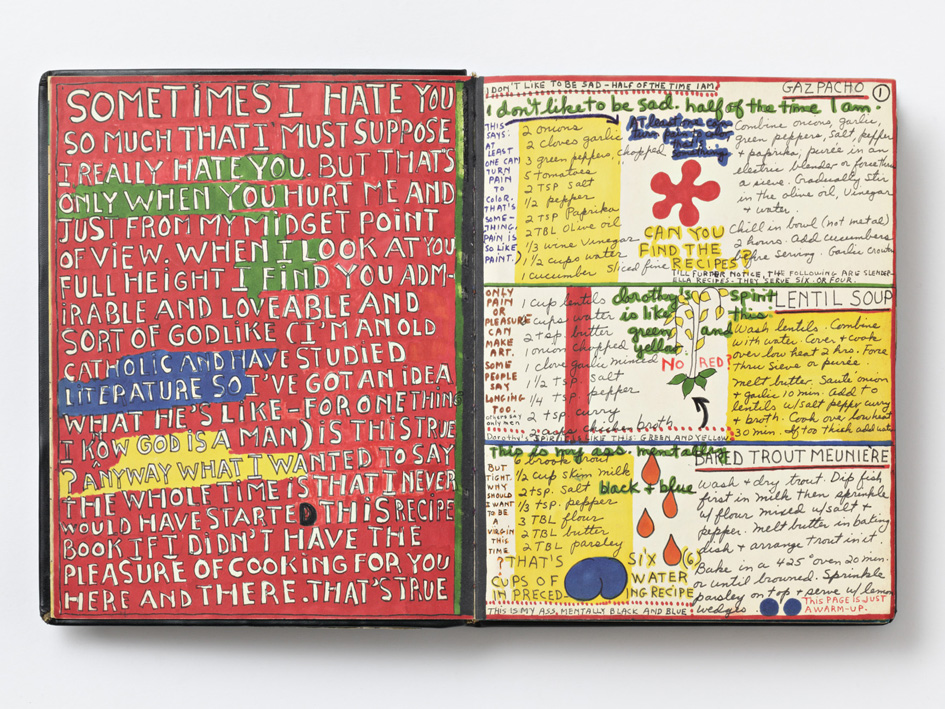 SOMETIMES I HATE YOU
SO MUCH THAT I MUST SUPPOSE
I REALLY HATE YOU. BUT THAT'S
ONLY WHEN YOU HURT ME AND
JUST FROM MY MIDGET POINT
OF VIEW. WHEN I LOOK AT YOU
FULL HEIGHT I FIND YOU ADM-
IRABLE AND LOVEABLE AND
SORT OF GODLIKE (I'M AN OLD
CATHOLIC AND HAVE STUDIED
LITEPATURE SO I'VE GOT AN IDEA
WHAT HE'S LIKE - FOR ONETHING
I KOW GOD IS A MAN) IS THIS TRUE
? ANYWAY WHAT I WANTED TO SAY
THE WHOLE TIME iS THAT I NEVER
WOULD HAVE STARTED THIS RECIPE
BOOK IF I DIDN'T HAVE THE
PLEASURE OF COOKING FOR YOU
HERE AND THERE. THAT'S TRUE
I DON'T LIKE TO BE SAD - HALF OF THE TIME I AM.
GAZPACHO 1
i don't like to be sad. half of the time I am.
THIS
SAYS:
AT
LEAST
ONE CAN
TURN
PAIN
TO
COLOR.
THAT'S
SOME-
THING.
PAIN IS
SO LIKE
PAINT.)
2 onions
2 cloves garlic
3 green peppers, chopped
5 tomatoes
2 TSP Salt
1/2 pepper
2 TSP Paprika
2 TBL Olive oil
1/3 wine Vinegar
1 1/2 cups water
1 cucumber sliced fine
AT least one can
turn pain to color
that's
something
CAN YOU
FIND THE
RECIPES?
Combine onions, garlic,
green peppers, salt, pepper
& paprika, purée in an
electric blender or force thru
a sieve. Gradually stir
in the olive oil, Vinegar
& water.
Chill in bowl (not metal)
2 hours. Add cucumbers
before serving. Garlic Croutons
TILL FURHER NOTICE, THE FOLLOWING ARE SLENDER-
ELLA RECIPES. THEY SERVE SIX. OR FOUR.
ONLY
PAIN
OR
PLEASURE
CAN
MAKE
ART.
SOME
PEOPLE
SAY
LONGING
TOO.
others say
only men
1 cup lentils
cups water
2 tsp. butter
1 onion chopped
1 clove garlic minced
1 1/2 tsp. salt
1/4 tsp pepper
2 tsp. curry
cups chicken broth
dorothy's spirit
is like this.
green and
yellow
NO RED?
LENTIL SOUP
Wash lentils. Combine
with water. Cover & cook
over low heat 2 hrs. Force
thru sieve or puree.
melt butter. Saute onion
& garlic 10 min. Add to
lentils w/salt pepper curry
& broth. Cook over low heat
30 min. If too thick add water
Dorothy's SPIRIT IS LIKE THIS: GREEN AND YELLOW
this is my ass. mentally
black + blue
BUT
TIGHT.
WHY
SHOULD
I WANT
TO BE
A
VIRGIN
THIS
TIME
?
6 brook trout
1/2 cup skim milk
2 tsp. salt
1/3 tsp. pepper
3 TBL flour
2 TBL butter
2 TBL parsley
THAT'S SIX (6)
CUPS OF WATER
IN PRECED- ING RECIPE
BAKED TROUT MEUNIÈRE
wash & dry trout. Dip fish
first in milk then sprinkle
w/ flour mixed w/salt &
pepper. melt butter in baking
dish & arrange trout in it.
Bake in a 425° oven 20 min.
or until browned. Sprinkle
parsley on top & serve w/ lemon
wedges.
THIS PAGE IS JUST
A WARM-UP.
THIS IS MY ASS, MENTALLY BLACK AND BLUE